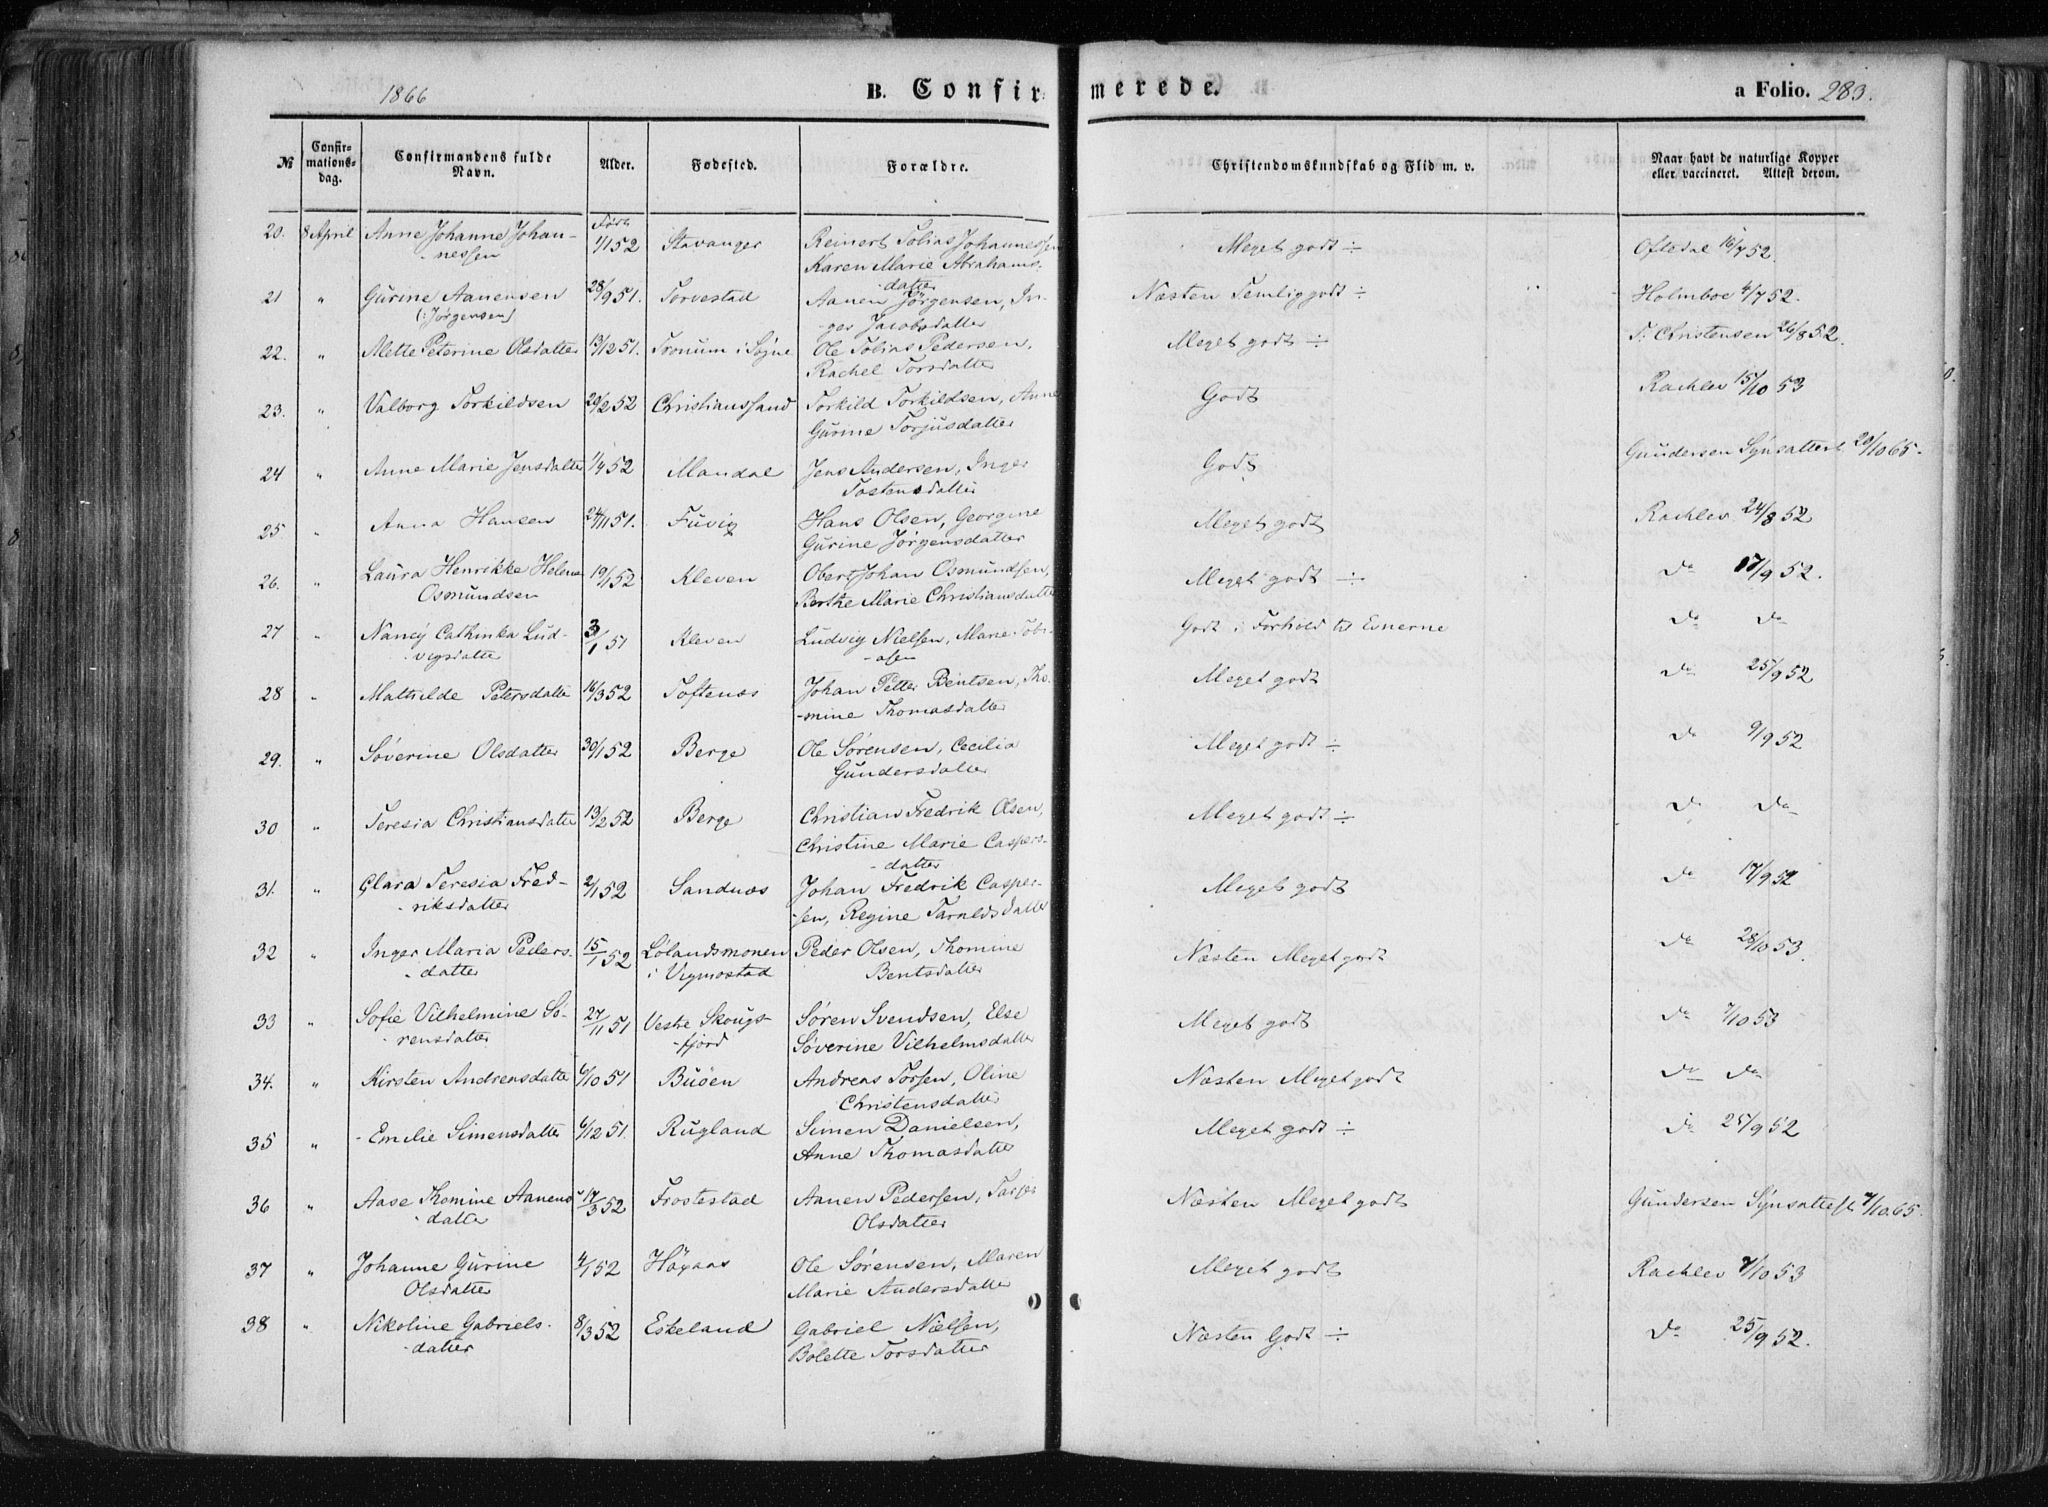 1866 B. Confirmerede. a Folio. 283.
№ Confirmationsdag. Confirmandens fulde Navn. Alder. Fødested. Forældre. Christendomskundskab og Flid m. v. Naar havt de naturlige Kopper eller vaccineret. Attest derom.
20. 8 April Anne Johanne Johan- 1/1 52 Stavanger Reinert Tobias Johannessen Meget godt ÷ Oftedal 16/7 52
-nessen Karen Marie Abrahams-
-datter
21 " Gurine Aanensen 28/9 51. Torvestad Aanen Jørgensen, In- Næsten Temlig godt ÷ Holmboe 4/7 52.
(: Jørgensen) -ger Jacobsdatter
22. " Mette Peterine Olsdatter 13/12 51. Tronum i Søgne Ole Tobias Pedersen, Meget godt ÷ T. Christensen 26/8 52.
Rachel Torsdatter
23. " Valborg Torkildsen 29/2 52 Christianssand Torkild Torkildsen, Anne Godt Rachlev 15/10 53
Gurine Torjusdatter
24 " Anne Marie Jensdatter 1/4 52 Mandal Jens Andersen, Inger Godt Gundersen Synsattest 20/10 65.
Tostensdatter
25. " Anna Hansen 24/11 51. Fuvig Hans Olsen, Georgine Meget godt Rachlev 24/8 52
Gurine Jørgensdatter
26. " Laura Henrikke Helene 19/1 52 Kleven Obert Johan Osmundsen, Meget godt ÷ do 17/9 52.
Osmundsen Berthe Marie Christiansdatter
27 " Nancy Cathinka Lud- 3/1 51 Kleven Ludvig Nielsen, Marie Tobi- Godt i Forhold til Evnerne do do
-vigsdatter -asen
28 " Mathilde Petersdatter 16/3 52 Toftenæs Johan Petter Bentsen, Tho- Meget godt do 25/9 52
-mine Thomasdatter
29. " Søverine Olsdatter 30/1 52 Berge Ole Sørensen, Cecilia Meget godt ÷ do 9/9 52
Gundersdatter
30 " Teresia Christiansdatter 13/2 52 Berge Christian Fredrik Olsen, Meget godt ÷ do do
Christine Marie Caspers-
-datter
31. " Clara Teresia Fred- 2/1 52 Sandnæs Johan Fredrik Casper- Meget godt do 17/9 52
-riksdatter -sen, Regine Tarald­sdatter
32 " Inger Maria Peders- 15/1 52 Lølandsmonen Peder Olsen, Thomine Næsten Meget godt do 28/10 53.
-datter i Vigmostad Bentsdatter
33 " Sofie Vilhelmine Sø- 27/11 51 Vestre Skougs- Søren Svendsen, Else Meget godt do 7/10 53
-rensdatter -fjord Søverine Vilhelmsdatter
34. " Kirsten Andreasdatter 6/10 51 Buøen Andreas Torsen, Oline Næsten Meget godt do do
Christensdatter
35 " Emilie Simensdatter 6/12 51. Rugland Simen Danielsen, Meget godt ÷ do 25/9 52
Anne Thomasdatter
36 " Aase Thomine Aanens- 17/3 52 Frostestad Aanen Pedersen, Tarjer Næsten Meget godt Gundersen Synsattest 7/10 65.
-datter Olsdatter
37 " Johanne Gurine 4/1 52 Høyaas Ole Sørensen, Maren Meget godt Rachlev 7/10 53
Olsdatter Marie Andersdatter
38 " Nikoline Gabriels- 8/3 52 Eskeland Gabriel Nielsen, Næsten Godt ÷ do 25/9 52.
-datter Bolette Torsdatter